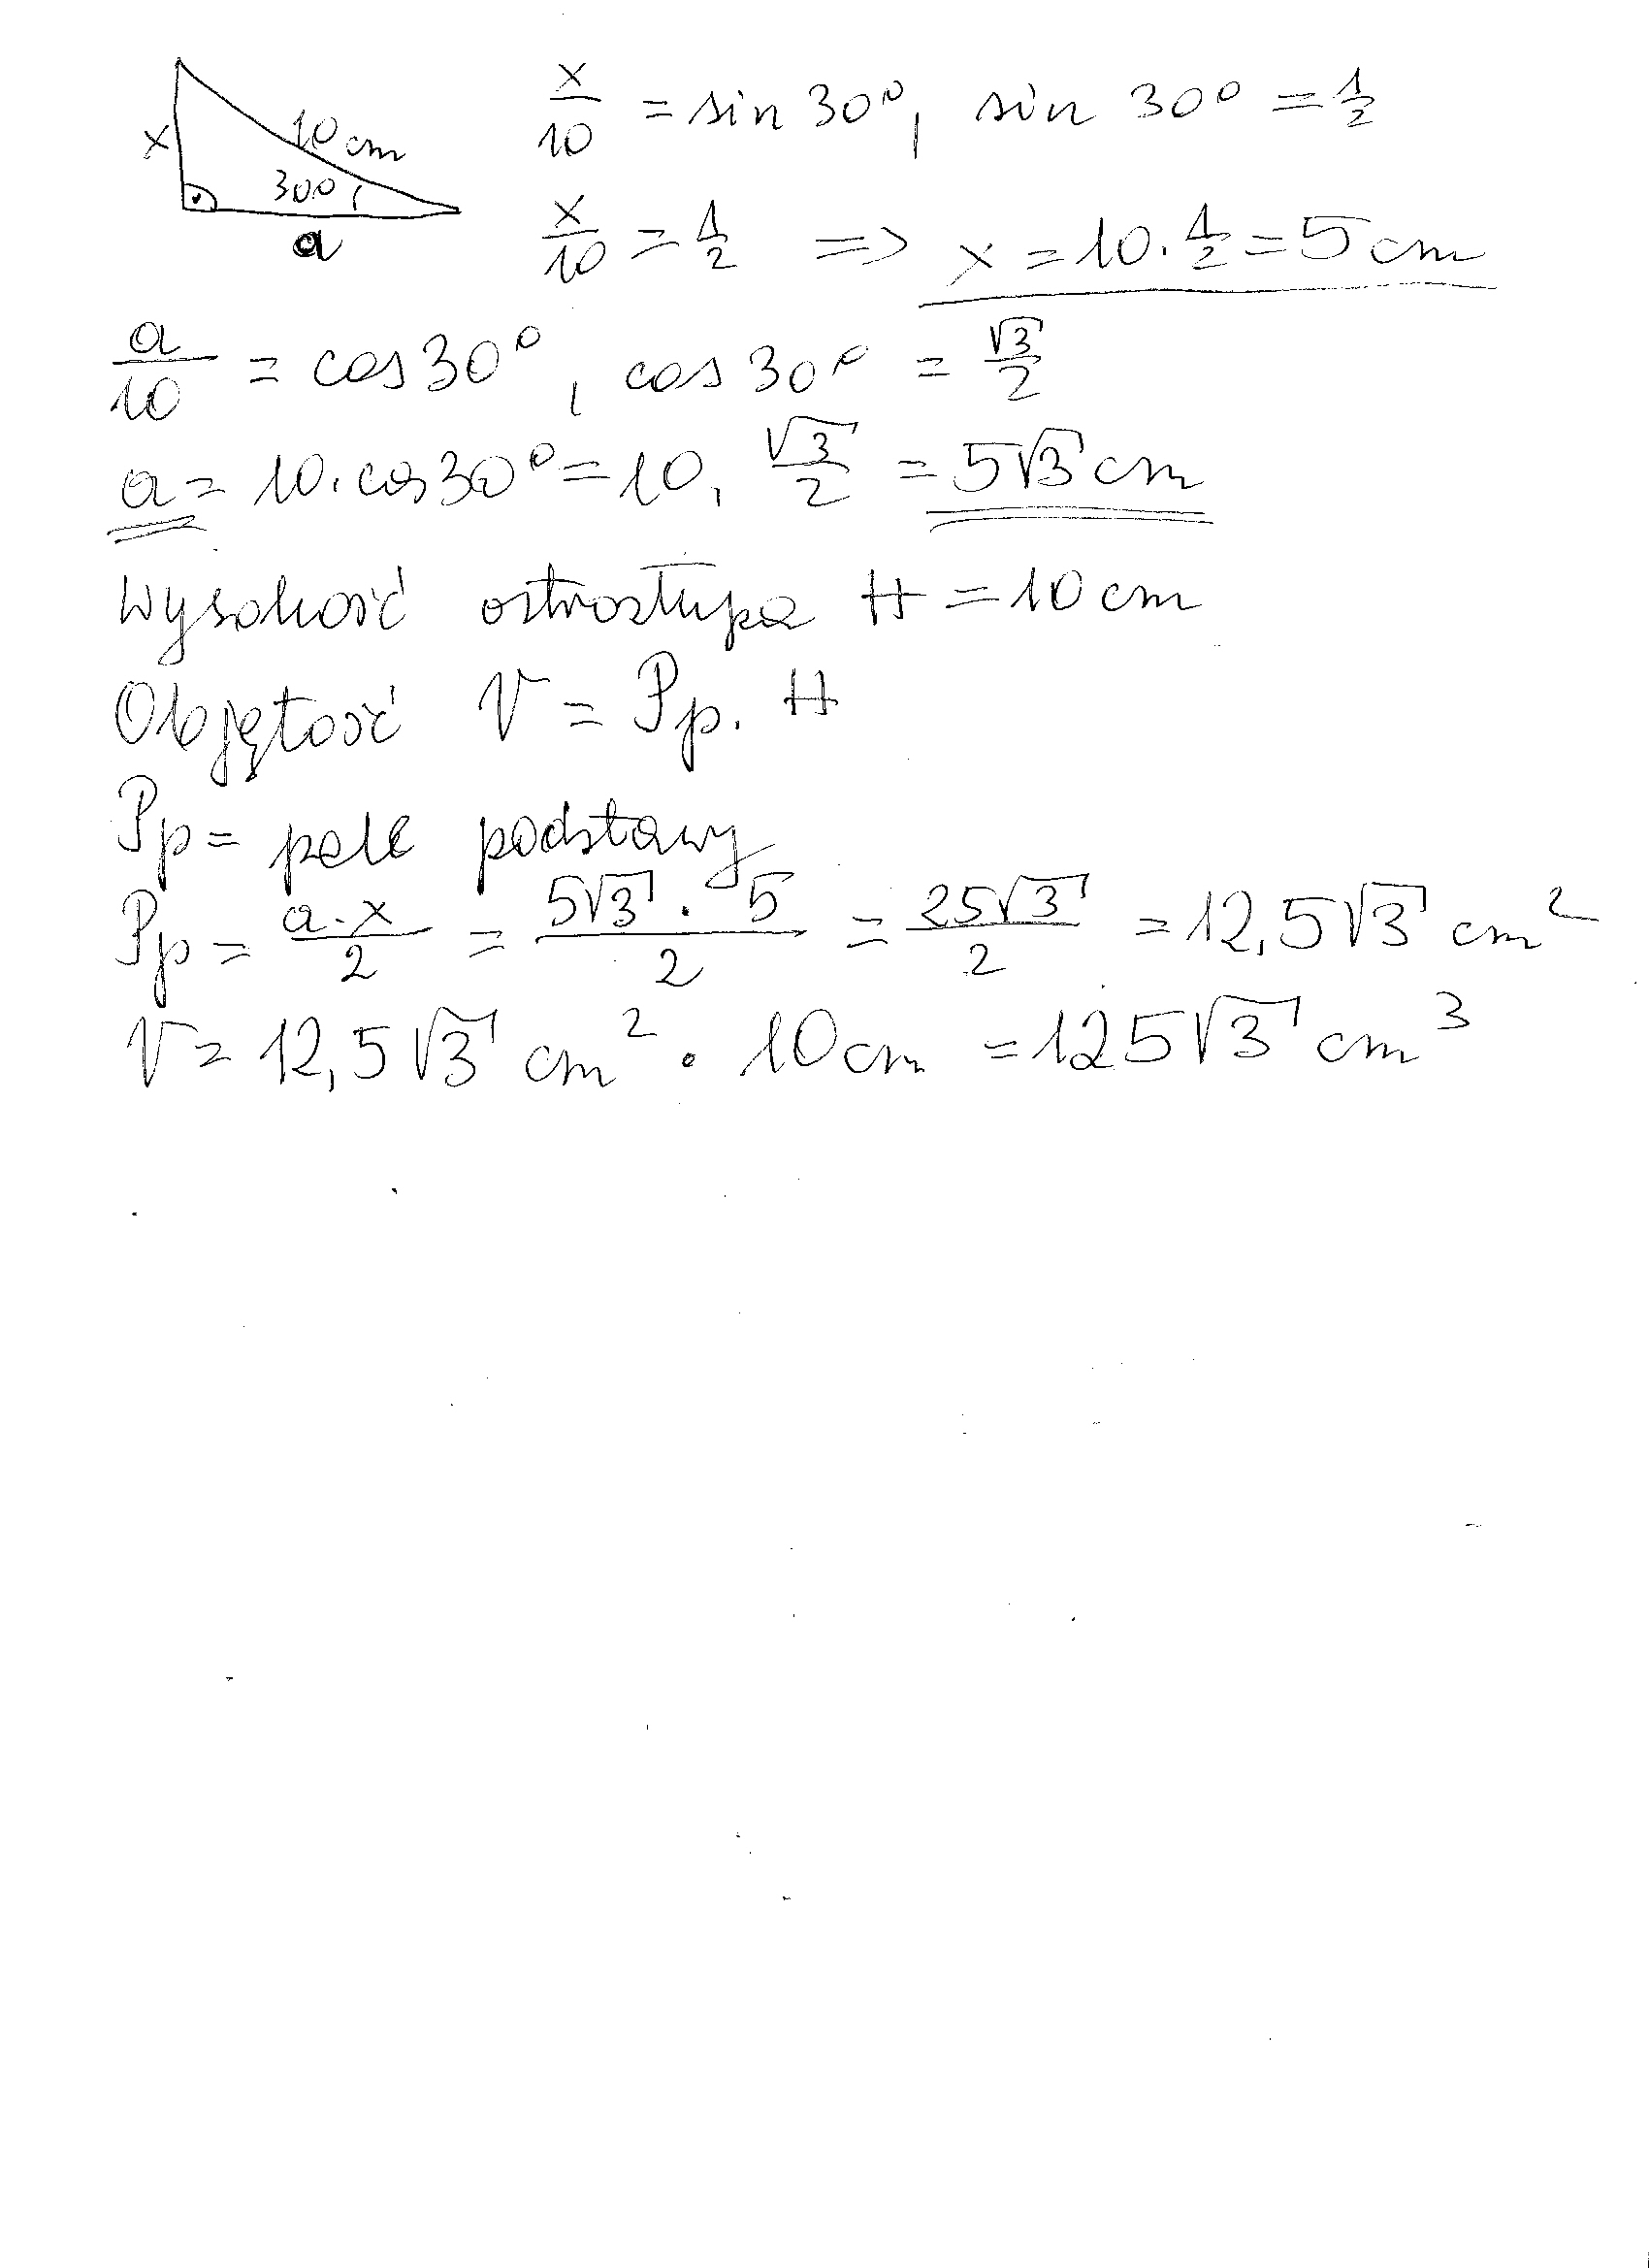 x 10 cm 30° a
x/10 = sin 30°, sin 30° = 1/2
x/10 = 1/2 => x = 10 · 1/2 = 5 cm
a/10 = cos 30°, cos 30° = √3/2
a = 10 · cos 30° = 10 · √3/2 = 5√3 cm
Wysokość ostrosłupa H = 10 cm
Objętość V = Pp · H
Pp = pole podstawy
Pp = a · x/2 = 5√3 · 5/2 = 25√3/2 = 12,5√3 cm²
V = 12,5√3 cm² · 10 cm = 125√3 cm³